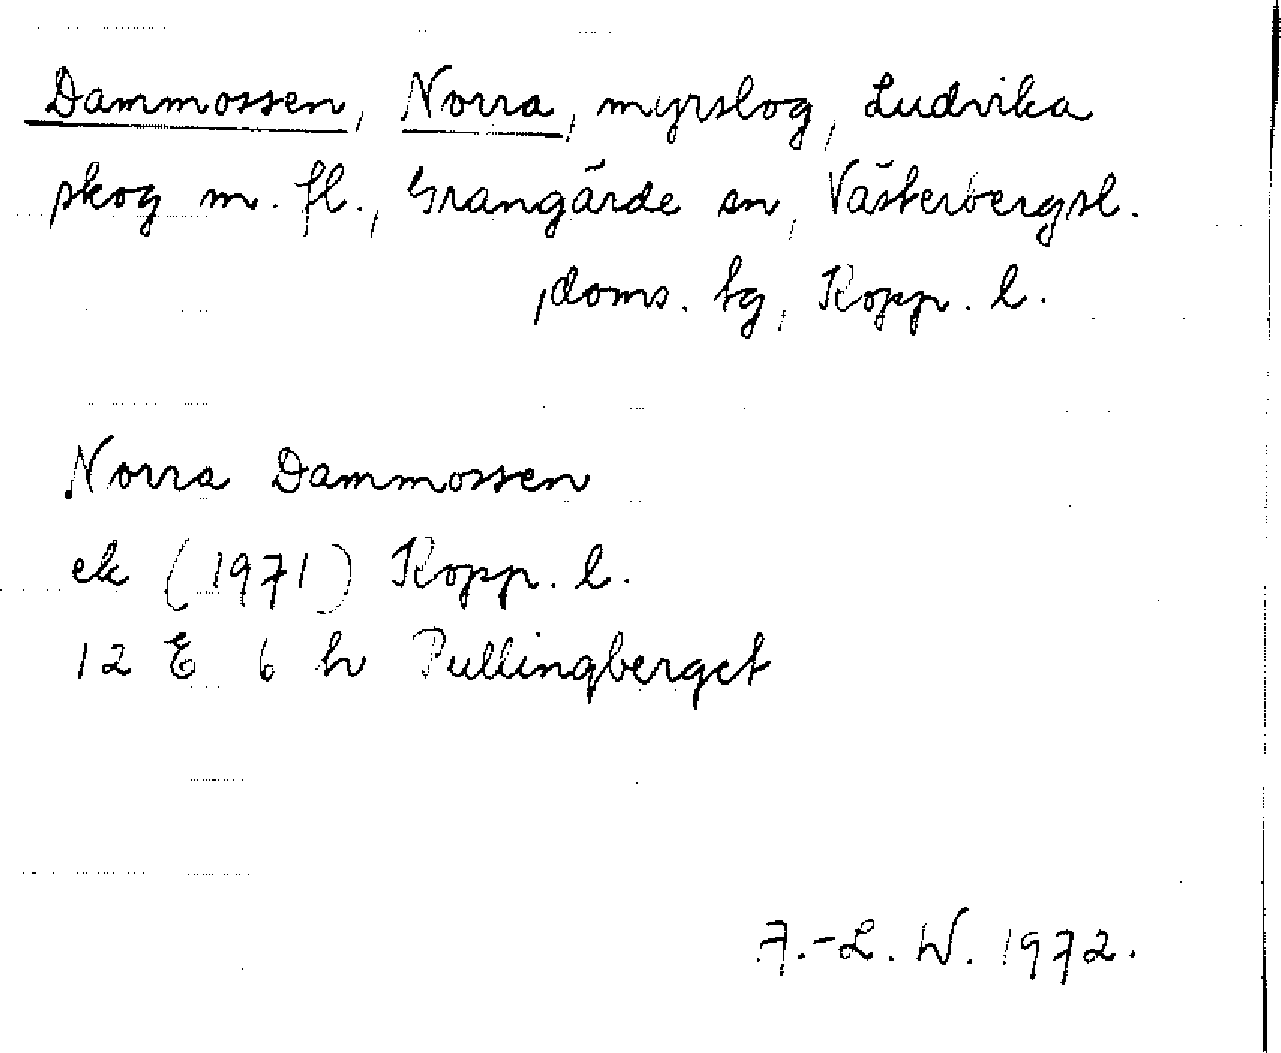 Dammossen, Norra, myrslog, Ludvika
skog m. fl., Grangärde sn, Västerbergsl.
doms. tg, Kopp. l.
Norra Dammossen
ek (1971) Kopp. l.
12 E 6 h Pullingberget
F.-L. W. 1972.